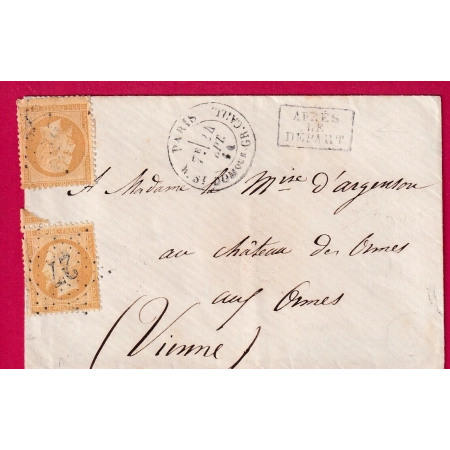 PARIS
R. St DOMque St GR. CAILL.
7E
APRÈS
LE
DÉPART
A Madame la Mise d'argenson
au château des Ormes
aux Ormes
(Vienne)
27